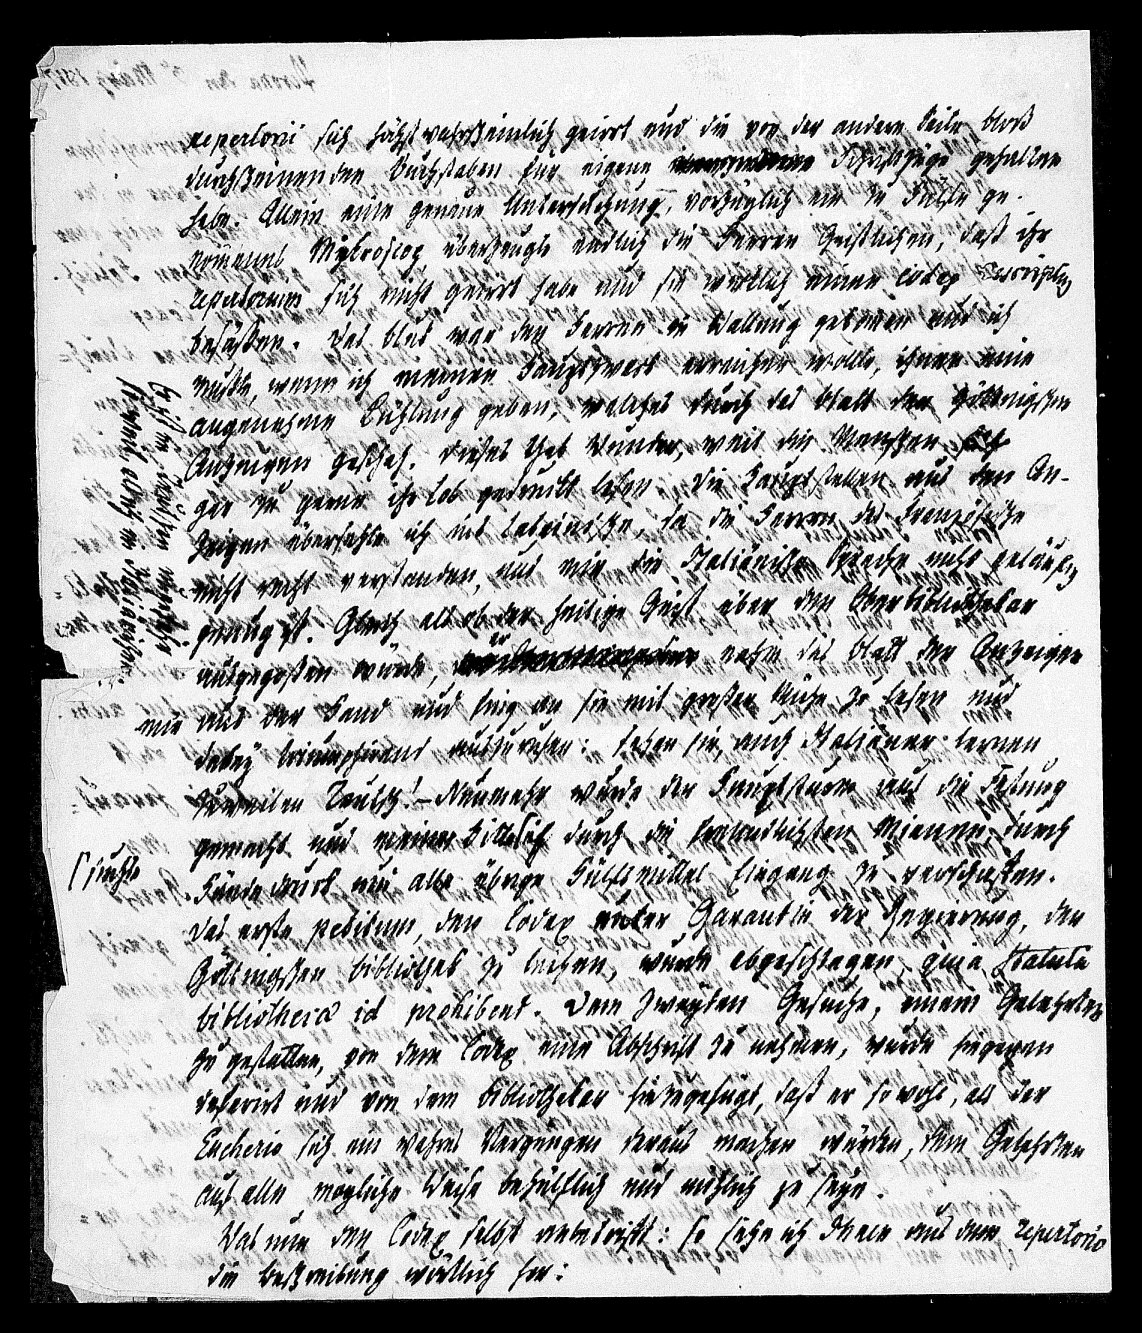 repertorii sich höchst wahrscheinlich geirrt und die von der andern Seite bloß
durchscheinenden Buchstaben für eigene Schriftzüge gehalten
habe. Allein eine genaue Untersuchung, vorzüglich ein zu Hülfe ge-
nomenes Mykroscop überzeugte endlich die Herren Geistlichen, daß ihr
repertorium sich nicht geirrt habe und sie wirklich einen codex rescriptus
besäßen. Das Blut war den Herren in Wallung gekomen und ich
mußte, wenn ich meinen Hauptzweck erreichen wollte, ihnen eine
angenehme Kühlung geben, welches durch das Blatt der Göttingischen
Anzeigen geschah. Dieses that Wunder, weil die Menschen
gar zu gerne ihr Lob gedruckt sehen. Die Hauptstellen aus den An-
zeigen übersetzte ich ins Lateinische, da die Herren das Französische
nicht recht verstanden, und mir die Italiänische Sprache nicht geläufig
genug ist. Gleich als ob der heilige Geist über den Oberbibliothekar
ausgegossen würde, nahm das Blatt der Anzeigen
mir aus der Hand und fing an sie mit großer Mühe zu lesen und
dabey triumphirend auszurufen: sehen sie, auch Italiäner lernen
zuweilen Teutsch! – Nunmehr wurde der Hauptsturm auf die Festung
gemacht und durch die freundlichsten Mienen, durch
suchte
Händedruck und alle übrige Hülfsmittel Eingang zu verschaffen.
Das erste petitum, den Codex unter Garantie der Regierung, der
Göttingischen Bibliothek zu leihen, wurde abgeschlagen, quia statuta
bibliothecae id prohibent. Dem zweyten Gesuche, einem Gelehrten
zu gestatten, von dem Codex eine Abschrift zu nehmen, wurde hingegen
deferirt und von dem Bibliothekar hinzugefügt, daß er sowohl, als der
sich ein wahres Vergnügen daraus machen würden, dem Gelehrten
auf alle mögliche Weise behülflich und nützlich zu seyn.
Was nun den Codex selbst anbetrifft: so setze ich Ihnen aus dem repertorio
die Beschreibung wörtlich her: